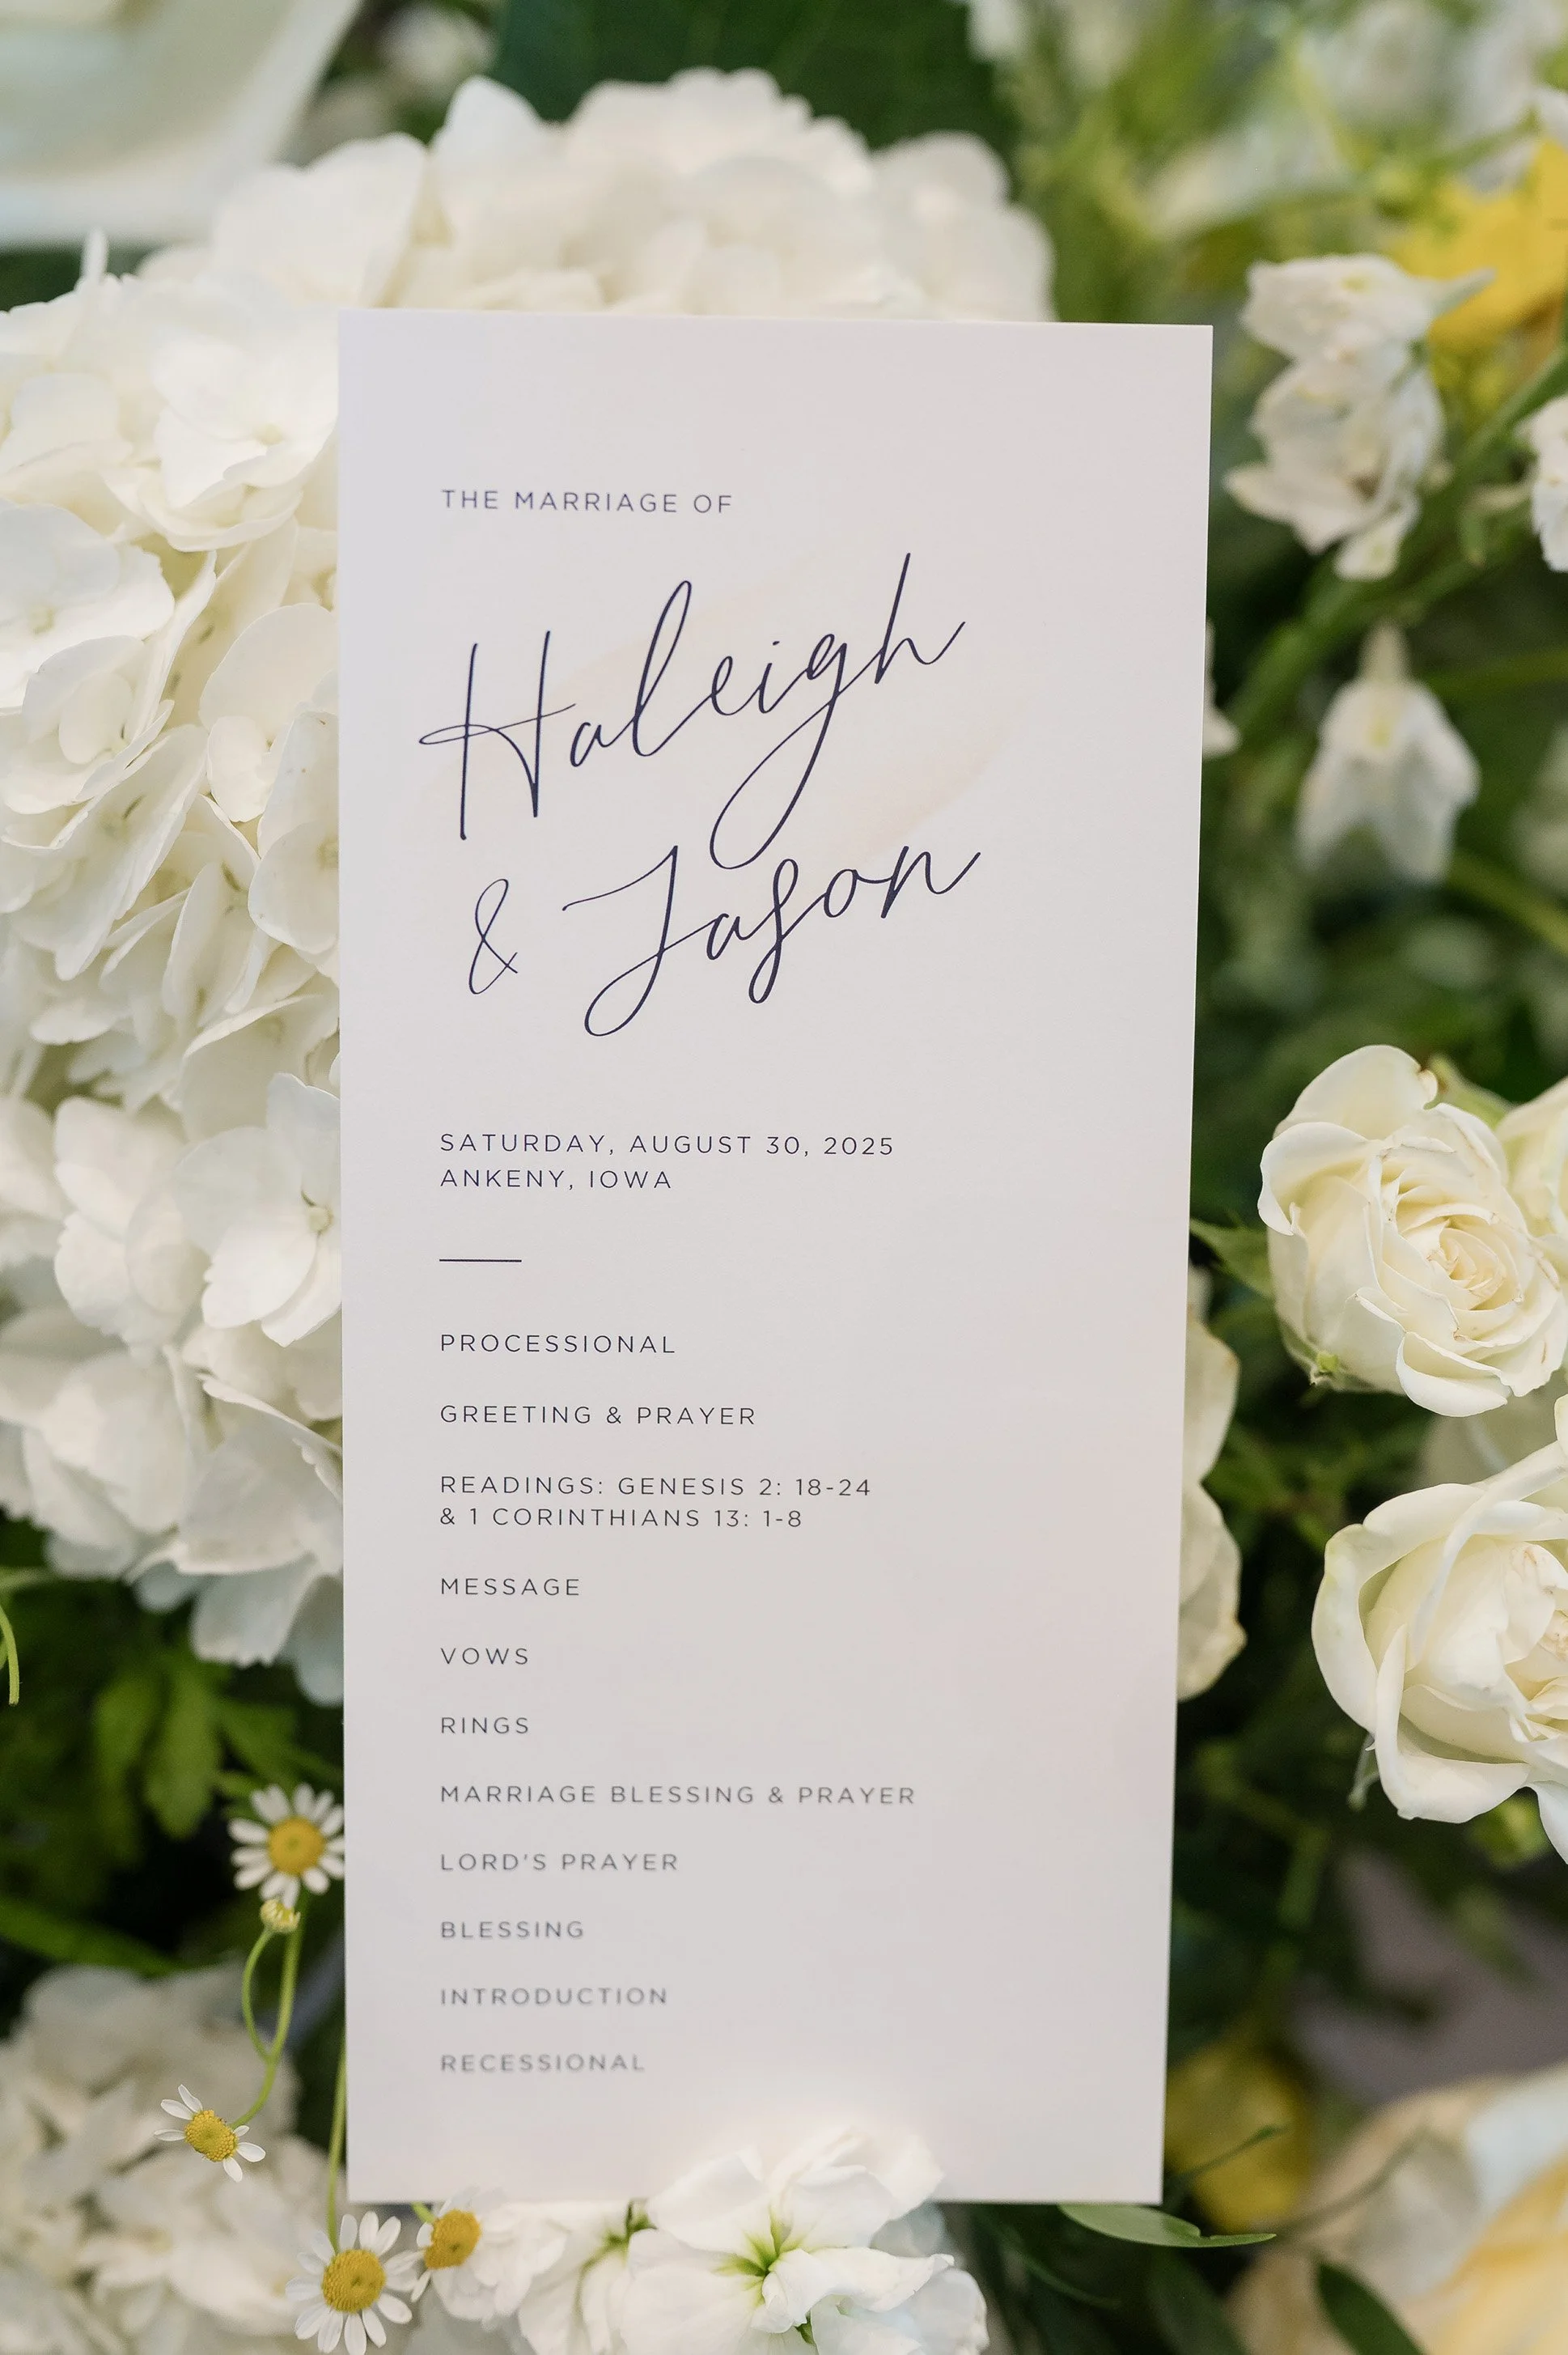 THE MARRIAGE OF
Haleigh
& Jason
SATURDAY, AUGUST 30, 2025
ANKENY, IOWA
PROCESSIONAL
GREETING & PRAYER
READINGS: GENESIS 2: 18-24
& 1 CORINTHIANS 13: 1-8
MESSAGE
VOWS
RINGS
MARRIAGE BLESSING & PRAYER
LORD'S PRAYER
BLESSING
INTRODUCTION
RECESSIONAL